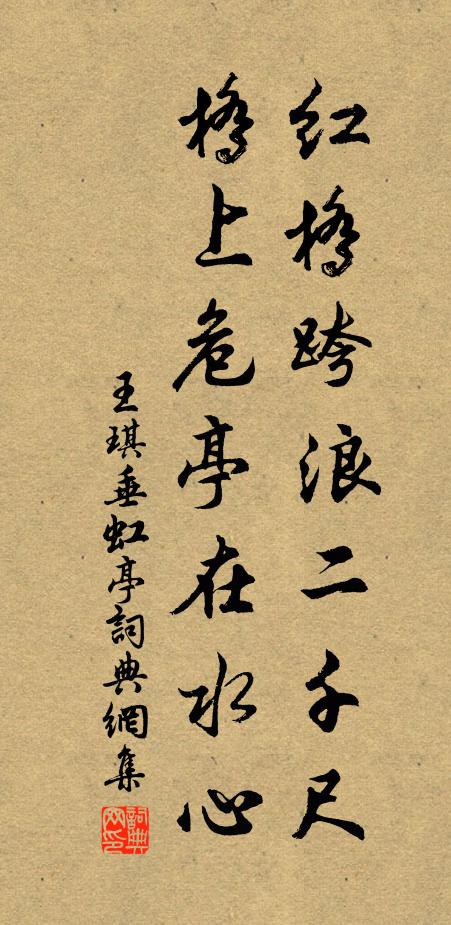 红橋跨浪二千尺
橋上危亭在水心
王琪垂虹亭詞典網集
詞典网印